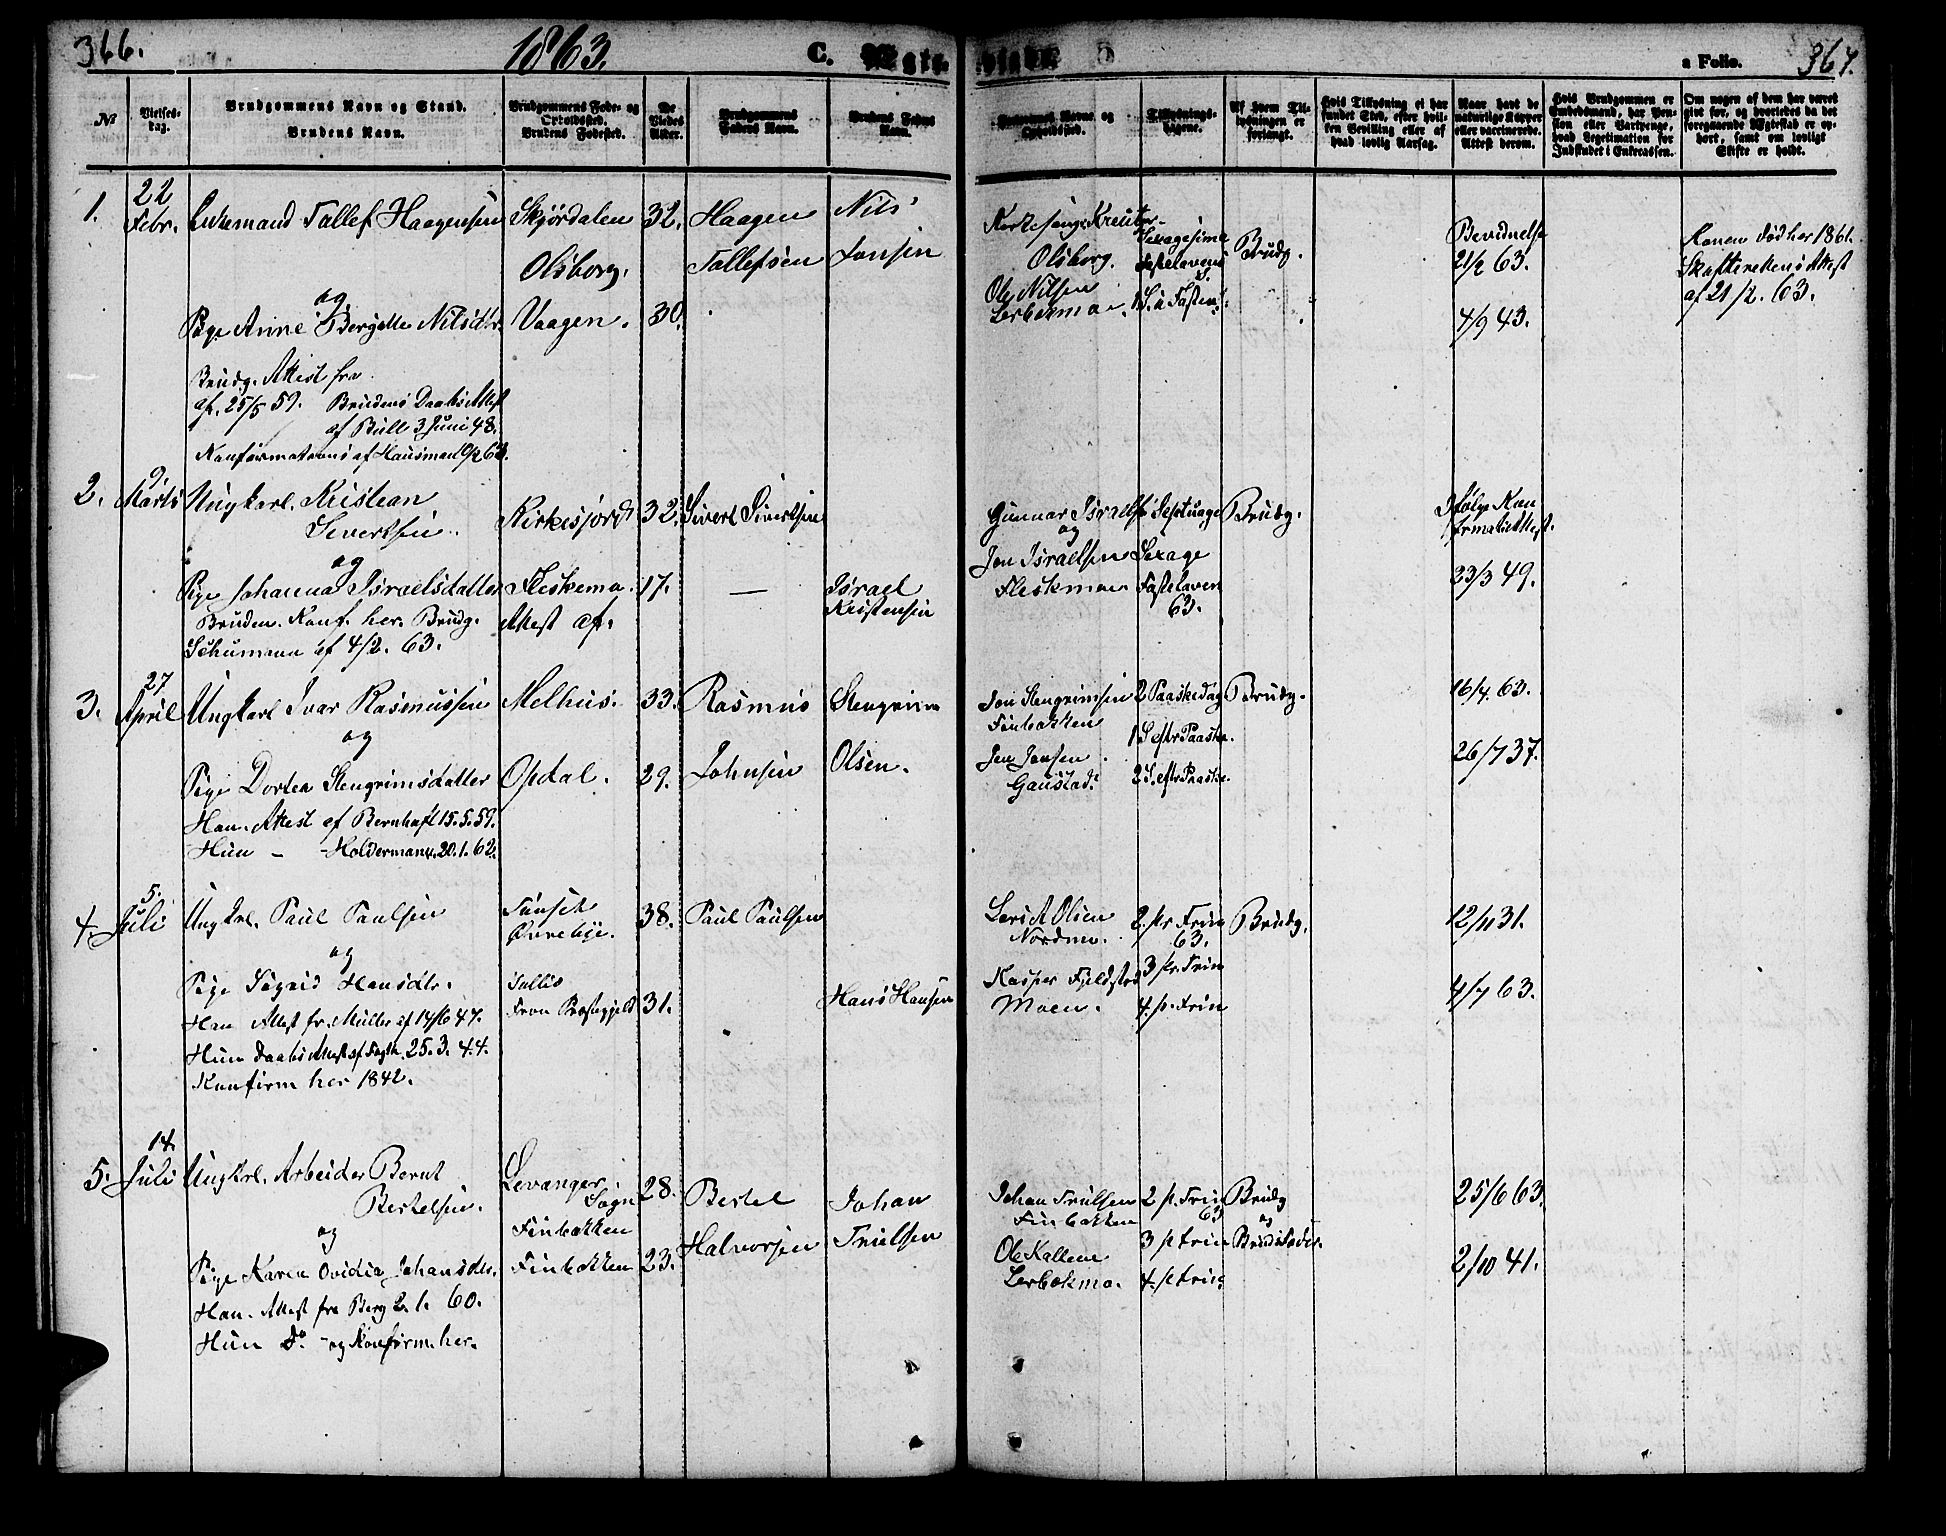 366.
1863.
C. Ægte-
viede
a Folio. 367.
№
Vielses-
dag.
Brudgommens Navn og Stand.
Brudens Navn.
Brudgommens Føde- og
Opholdssted.
Brudens Fødested.
De
Viedes
Alder.
Brudgommens
Faders Navn.
Brudens Faders
Navn.
Forlovernes Navne og
Opholdssted.
Tillysnings-
dagene.
Af hvem Til-
lysningen er
forlangt.
Hvis Tillysning ei har
fundet Sted, efter hvil-
ken Bevilling eller af
hvad lovlig Aarsag.
Naar havt de
naturlige Kopper
eller vaccinerede.
Attest derom.
Hvis Brudgommen er
Embedsmand, har Pen-
sion eller Vartpenge,
hvad Legitimation for
Indskudet i Enkecassen.
Om nogen af dem har været
gift før, og hvorledes da det
foregaaende Ægteskab er op-
hørt, samt om lovligt
Skifte er holdt.
1.
22
Febr.
Enkemand Tallef Haagensen
og
Pige Anne Bergitte Nilsdtr.
Brudg. Attest fra
af. 25/5 59. Brudens Daabs Attest
af Bull 3 Juni 48.
Konfirmations af Hausman
Skjørdalen
Olsborg.
Vaagen.
32.
30.
Haagen
Tallefsen
Nils
Jonsen
Kirkesang. Kreutzer-
Olsborg.
Ole Nilsen
Lerbekmoe.
Sexagesima
Fastelavens
1 S. i Fasten.
Brudg.
Bevidnelse
21/2 63.
4/9 43.
Konen død her 1861.
Skifterettens Attest
af 21/2. 63.
2.
9.
Marts
Ungkarl. Kristian
Sivertsen.
og
Pige Johanna Israelsdatter
Bruden. Konf. her. Brudg.
Attest af.
Schumann af 4/2. 63.
Kirkesjord
Fleskemo.
32.
17.
Sivert Sivertsen
—
Israel
Kristensen
Gunnar Israels
og
Jon Israelsen
Fleskmoe
Septuage
Sexage
Fastelaven
63.
Brudg.
Ifølge Kon
firmatAttest.
23/3 49.
3.
27
April
Ungkarl Ivar Rasmussen
og
Pige Dortea Stengrimsdatter
Han. Attest af Bernhoft 15.5.59.
Hun – –Holdermann. 20.1.62.
Melhus.
Opdal.
33.
29.
Rasmus
Johnsen
Stengrim
Olsen.
Jon Stengrimsen
Finbakken
Jens Jonsen
Gaustad.
2 Paaskedag
1 S eftr Paaske.
2 S. eftr Paaske
Brudg.
16/4. 63.
26/7 37.
4.
5.
Juli
Ungkrl. Paul Paulsen
og
Pige Sigrid Hansdtr.
Han Attest fr. Müller af 14/6 47.
Hun Daabs Attest af Fogth 25.3.44.
Konfirm her 1842.
Fron Præstegjeld
38.
31.
Paul Paulsen
Hans Hansen
Lars A Olsen
Nordmo.
Kasper Fjeldstad
Moen.
2. pr Trin
63.
3 pr. Trin
4. p. Trin
Brudg.
12/11 31.
4/7 63.
5.
14
Juli
Ungkrl. Arbeider Bernt
Bertelsen.
og
Pige Karen Ovidia Johansdtr.
Han. Attest fra Berg 2. 1. 60.
Hun Do – og Konfirm. her.
Levanger
Sogn
Finbakken
Finbakken
28.
23.
Bertel
Halvorsen
Johan
Trulsen
Johan Trulsen
Finbakken
Ole Kallene
Lerbekmo.
2 p. Trin
63
3 p trin
4. p trin
Brudg
og
Brudsfader.
25/6 63.
2/10 41.